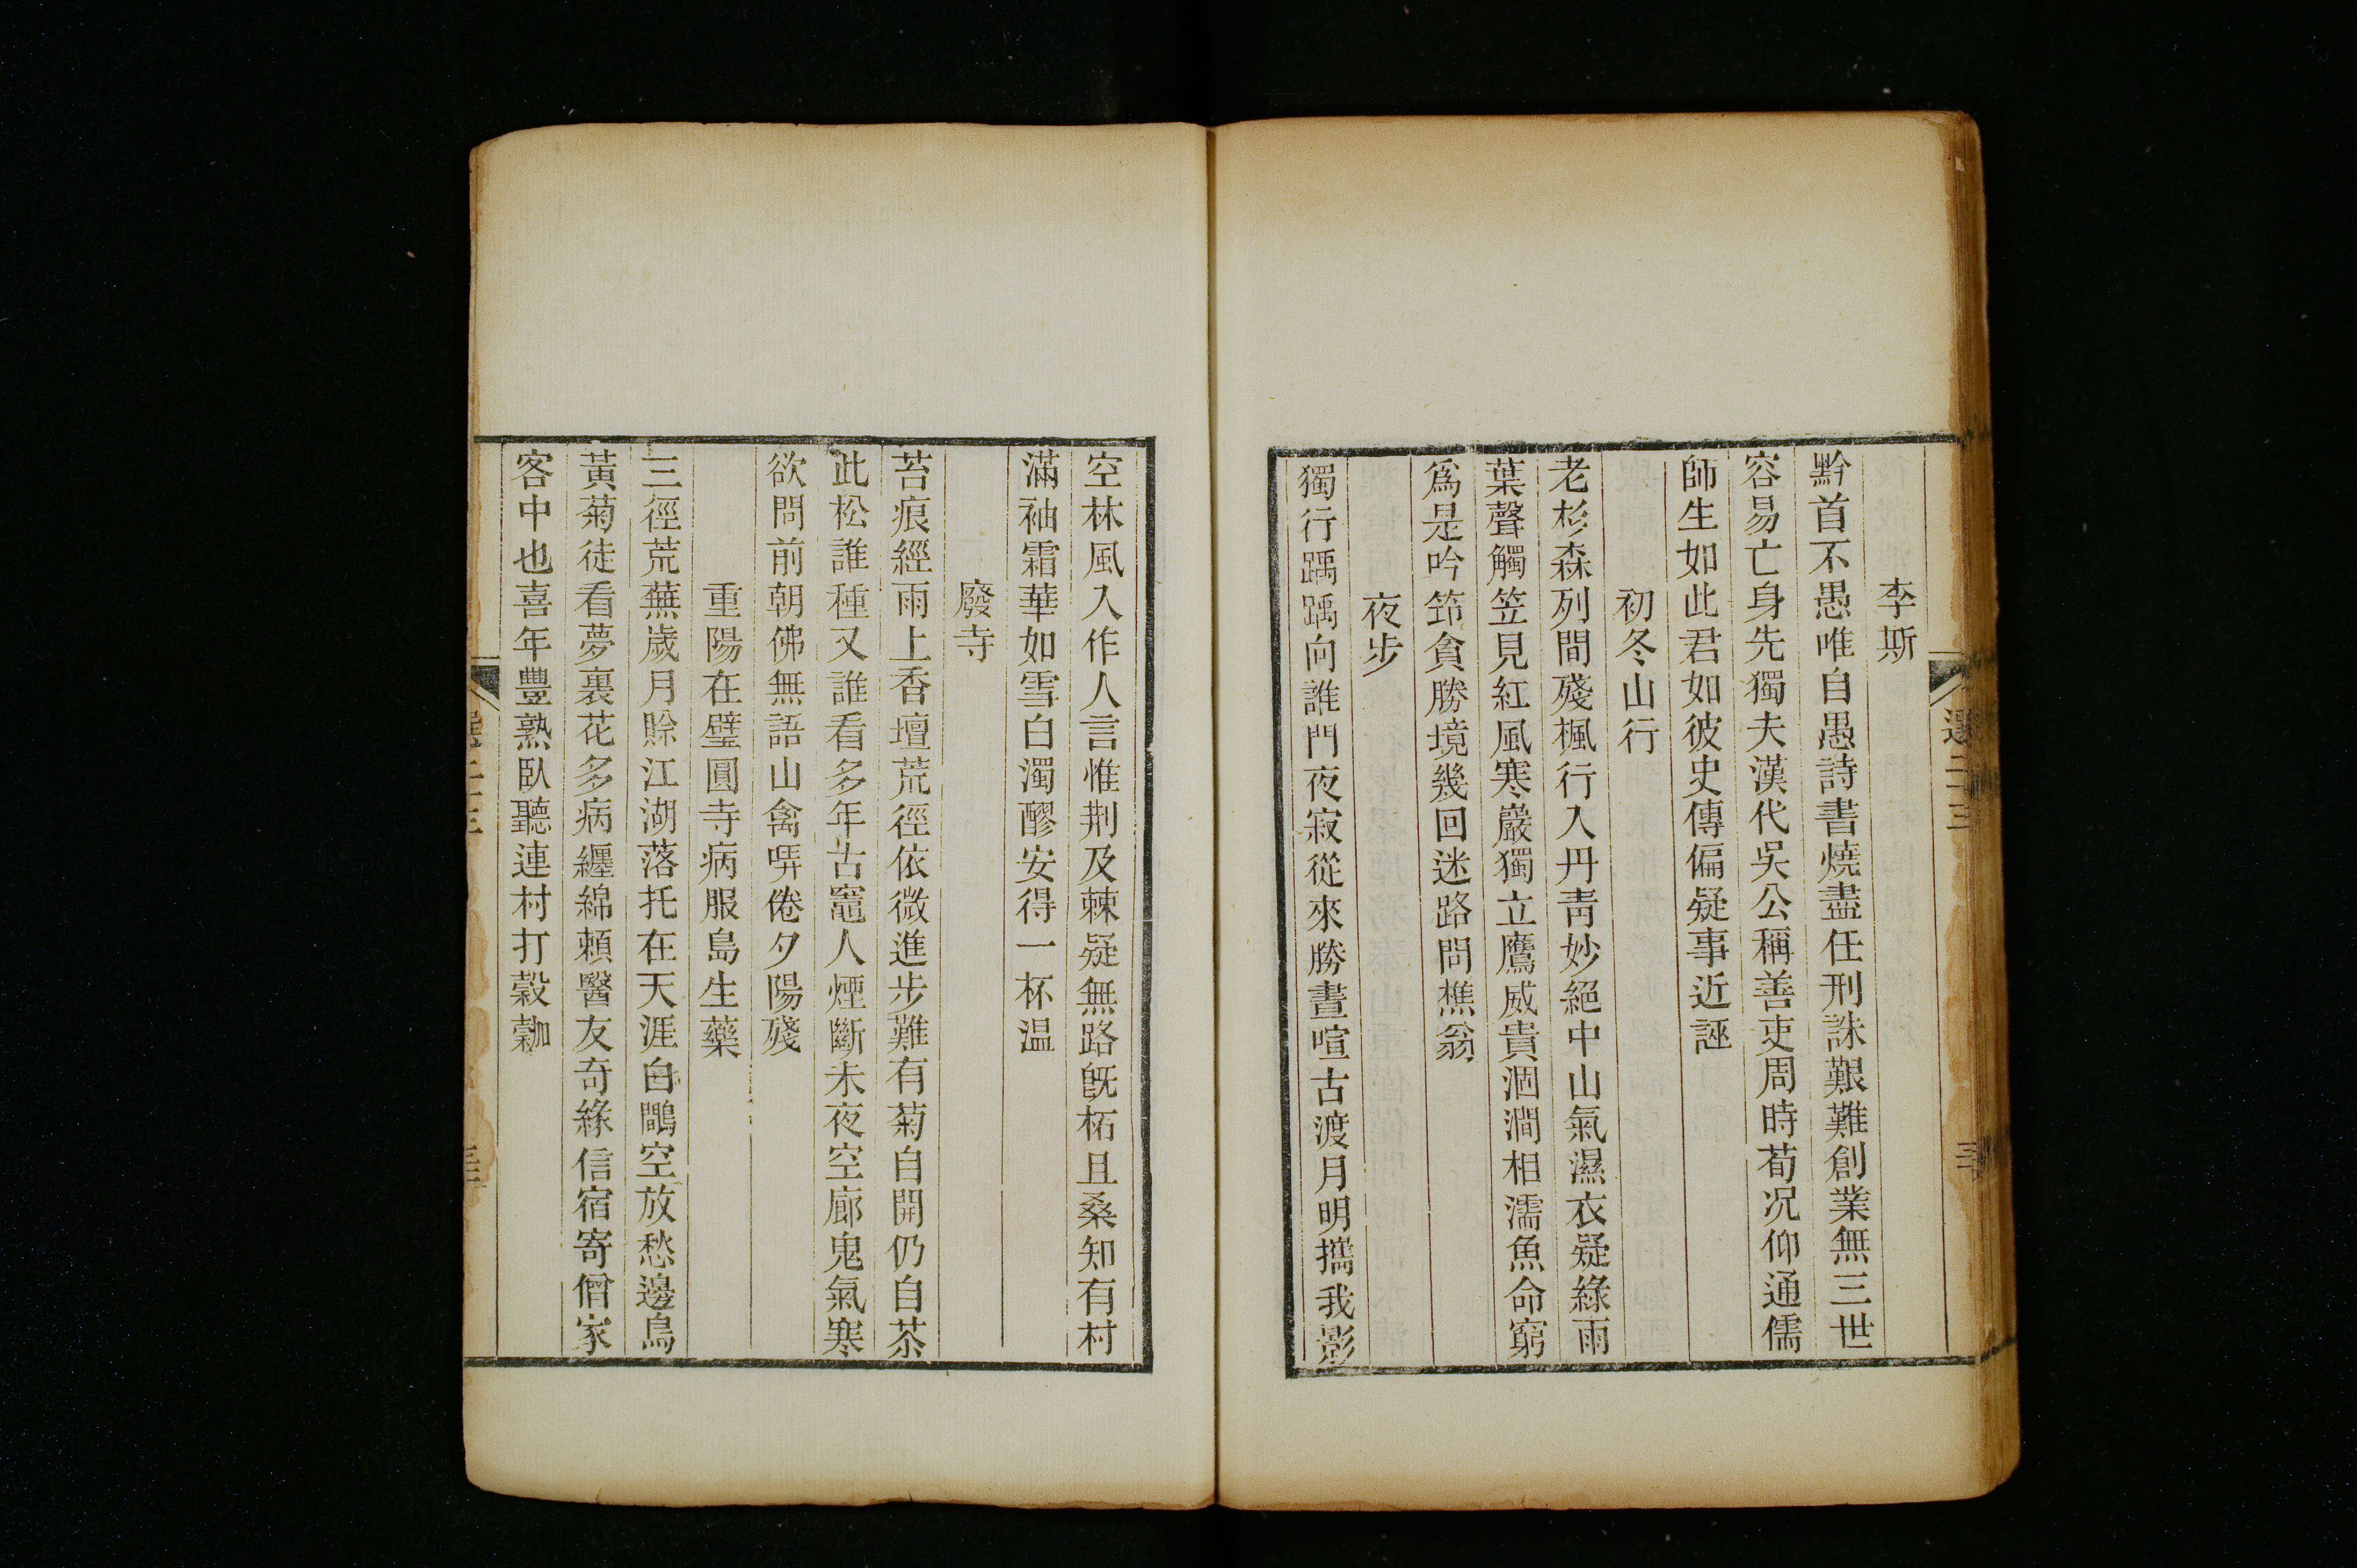 李斯
黔首不愚唯自愚詩書燒盡任刑誅艱難創業無三世
容易亡身先獨夫漢代吳公稱善吏周時荀况仰通儒
師生如此君如彼史傳偏疑事近誣
初冬山行
老杉森列間殘楓行入丹青妙絕中山氣濕衣疑綠雨
葉聲觸笠見紅風寒巖獨立鷹威貴涸澗相濡魚命窮
爲是吟筇貪勝境幾回迷路問樵翁
夜步
獨行踽踽向誰門夜寂從來勝晝喧古渡月明攜我影
空林風入作人言惟荆及棘疑無路旣柘且桑知有村
滿袖霜華如雪白濁醪安得一杯温
廢寺
苔痕經雨上香壇荒徑依微進步難有菊自開仍自茶
此松誰種又誰看多年古竈人煙斷未夜空廊鬼氣寒
欲問前朝佛無語山禽哢倦夕陽殘
重陽在璧圓寺病服島生藥
三徑荒蕪歲月賒江湖落托在天涯白鷳空放愁邊鳥
黃菊徒看夢裏花多病纏綿賴醫友奇緣信宿寄僧家
客中也喜年豐熟臥聽連村打穀